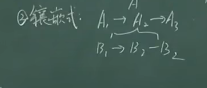 A
②镶嵌式: A₁→A₂→A₃
B₁→B₂—B₂